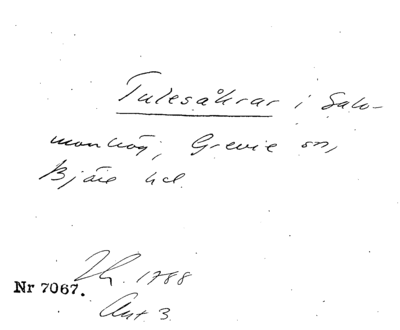 Tulesåkrar i Salo-
monhög, Grevie sn,
Bjäre hd.
1788
Nr 7067.
Akt 3